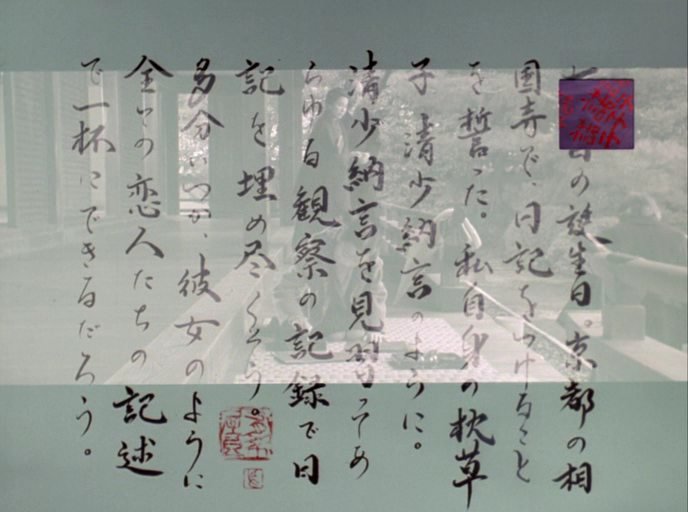 の誕生日。京都の相
国寺で、日記をつけること
を誓った。私自身の枕草
子 清少納言のように。
清少納言を見習ってあ
らゆる観察の記録で日
記を埋め尽くそう。
多分いつか、彼女のように
全ての恋人たちの記述
で一杯にできるだろう。